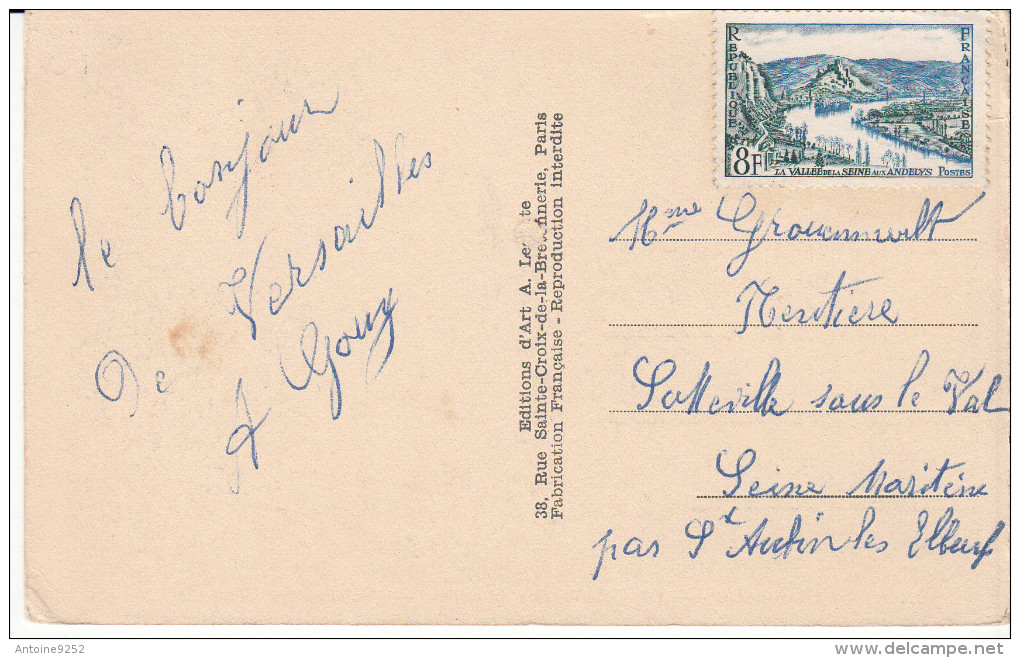 le bonjour
De Versailles
A Gouy
Editions d'Art A. Le te
38, Rue Sainte-Croix-de-la-Bre nnerie, Paris
Fabrication Française - Reproduction interdite
REPUBLIQUE
FRANÇAISE
8F
LA VALLÉE DE LA SEINE AUX ANDELYS POSTES
Mme
Rentière
Sotteville sous le Val
Seine Maritime
par St Aubin les Elbeuf
Antoine9252
delcampe.net